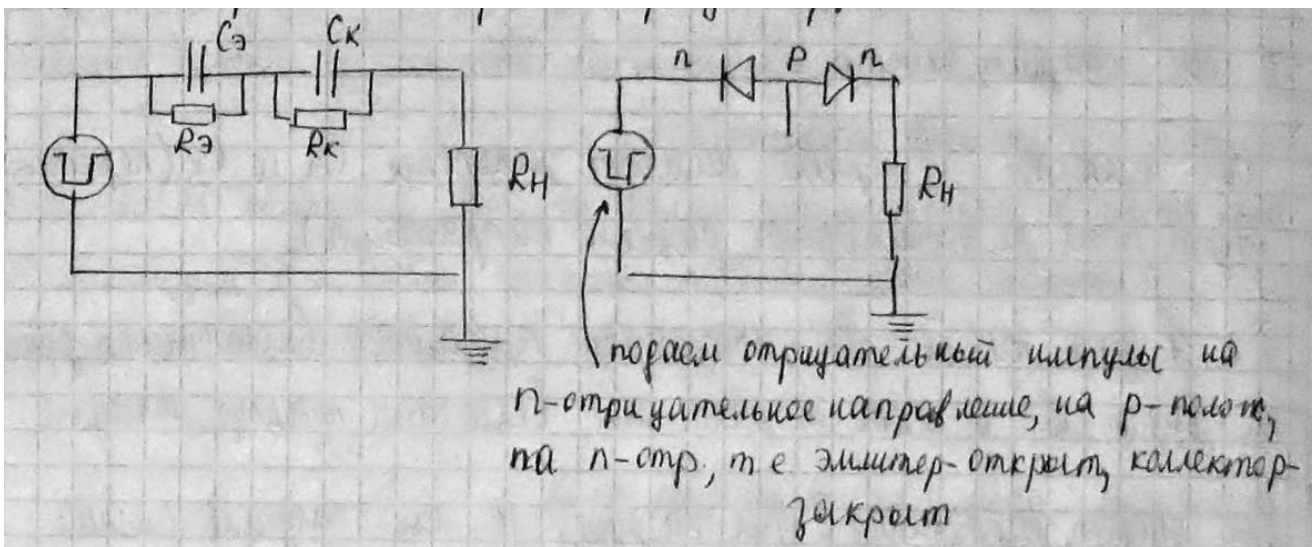 Cэ
Cк
Rэ
Rк
Rн
n
p
n
Rн
подаем отрицательный импульс на
n-отрицательное направление, на p-полож,
на n-отр., т е эмиттер-открыт, коллектор-
закрыт